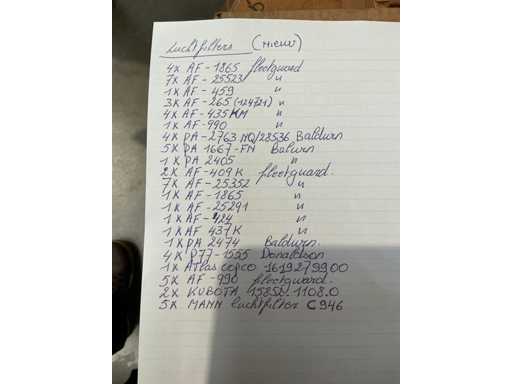 Luchtfilters (NIEUW)
4x AF-1865 fleetguard
7x AF-25523 "
1x AF-459 "
3x AF-265 (124721) "
4x AF-435KM "
1x AF-990 "
4x PA-2763 NQ/28536 Baldwin
5x PA 1667-FN Balwin
1x PA 2405 "
2x AF-409K fleetguard.
7x AF-25352 "
1x AF-1865 "
1x AF-25291 "
1x AF-424 "
1x AF 437K "
1x PA 2474 Baldwin
4x P77-1555 Donaldson
1x Atlas copco 1619279900
5x AF-990 fleetguard.
2x KUBOTA 15852.1108.0
5x MANN luchtfilter C946